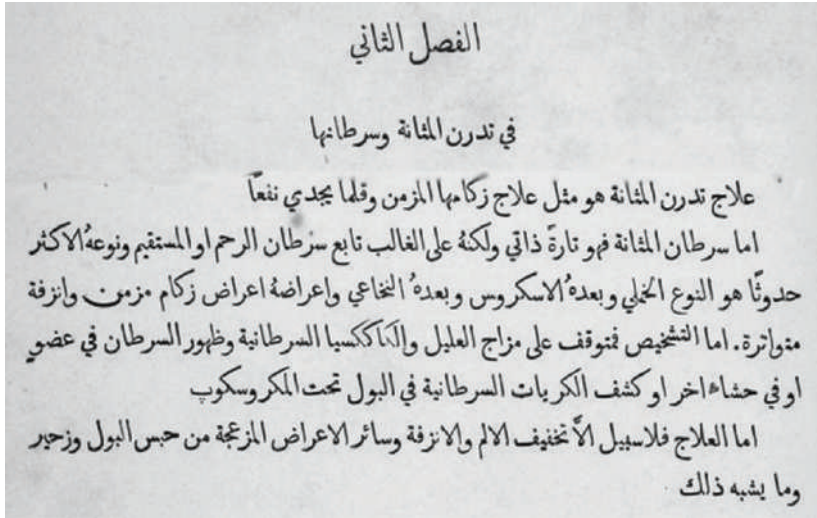 الفصل الثاني
في تدرن المثانة وسرطانها
علاج تدرن المثانة هو مثل علاج زكامها المزمن وقلما يجدي نفعًا
اما سرطان المثانة فهو تارةً ذاتي ولكنهُ على الغالب تابع سرطان الرحم او المستقيم ونوعهُ الاكثر
حدوثًا هو النوع الخملي وبعدهُ الاسكروس وبعدهُ النخاعي واعراضهُ اعراض زكام مزمن وانزفة
متواترة. اما التشخيص فمتوقف على مزاج العليل والكاككسيا السرطانية وظهور السرطان في عضوٍ
او في حشاء اخر او كشف الكريات السرطانية في البول تحت المكروسكوپ
اما العلاج فلاسبيل الَّا تخفيف الالم والانزفة وسائر الاعراض المزعجة من حبس البول وزحير
وما يشبه ذلك